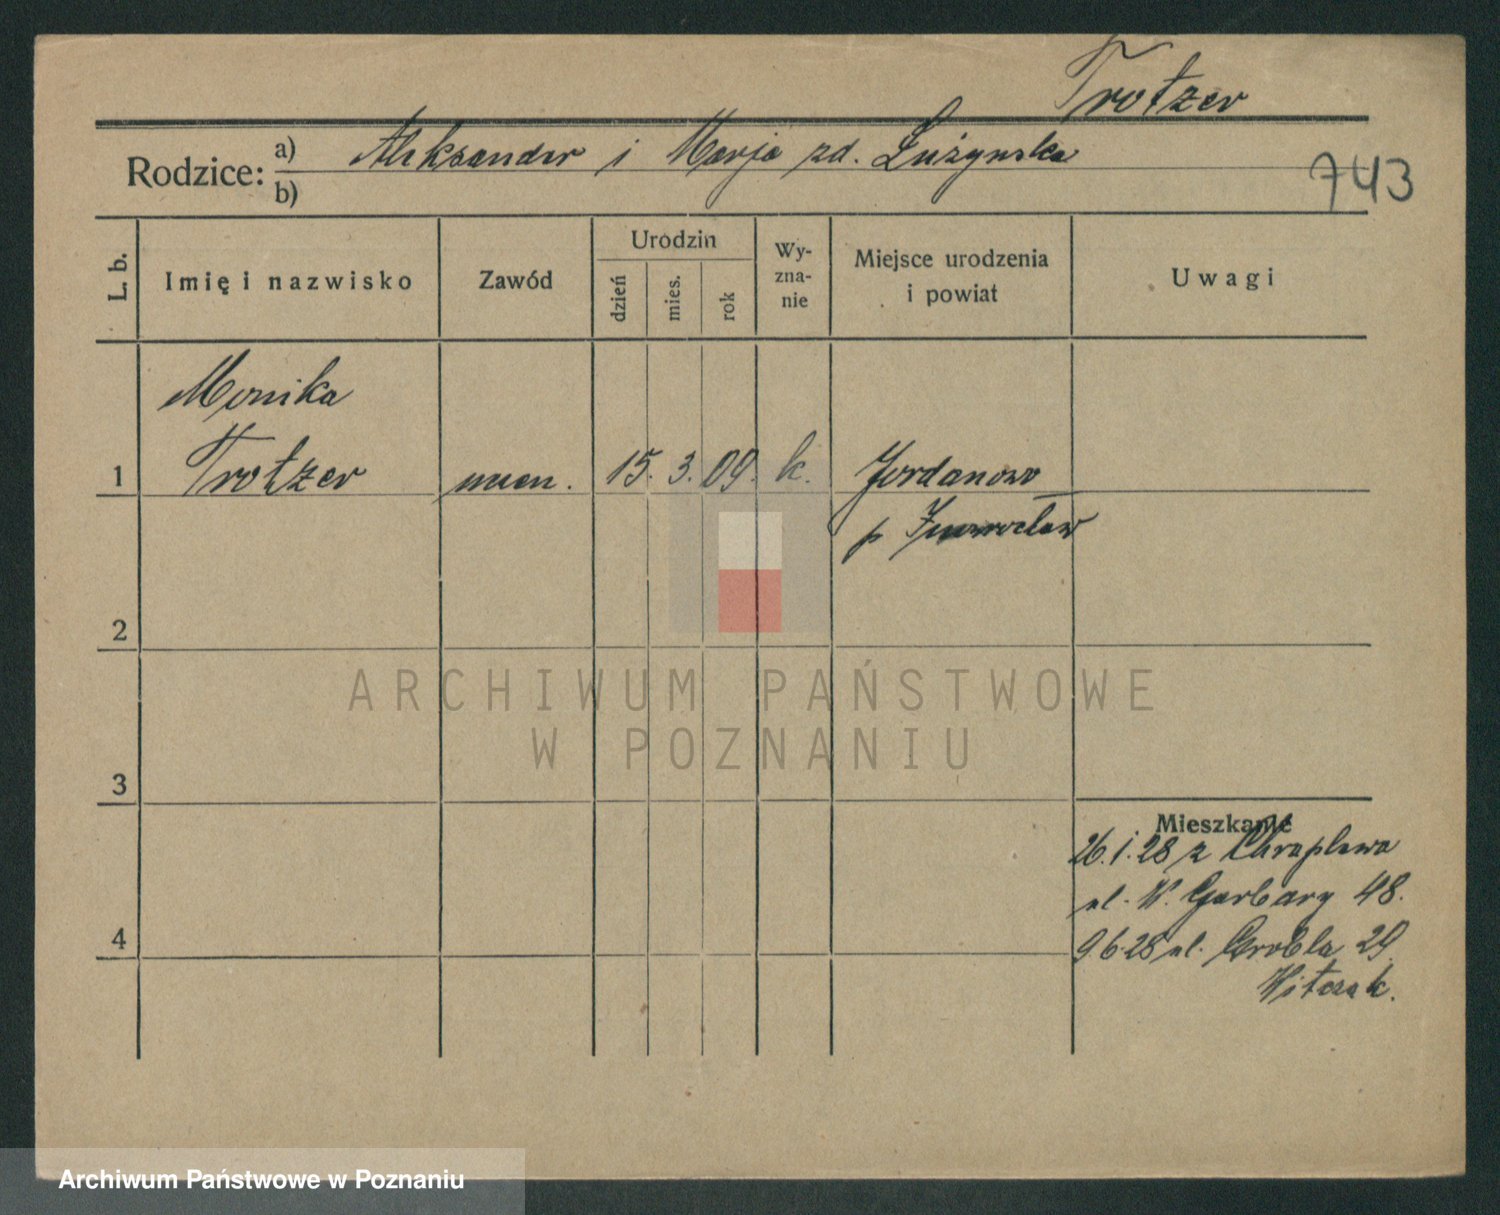 Trotzer
Rodzice: a) Aleksander i Marja zd. Łużynska
b)
743
L. b.
Imię i nazwisko
Zawód
Urodzin
dzień
mies.
rok
Wy-
zna-
nie
Miejsce urodzenia
i powiat
Uwagi
Monika
1 Trotzer uczen. 15. 3. 09. k. Jordanowo
p Inowrocław
2
ARCHIWUM PAŃSTWOWE
W POZNANIU
3
Mieszkanie
26.1.28 z Chraplewa
ul. W. Garbary 48.
4
9.6.28 ul. Grobla 29.
Witczak.
Archiwum Państwowe w Poznaniu